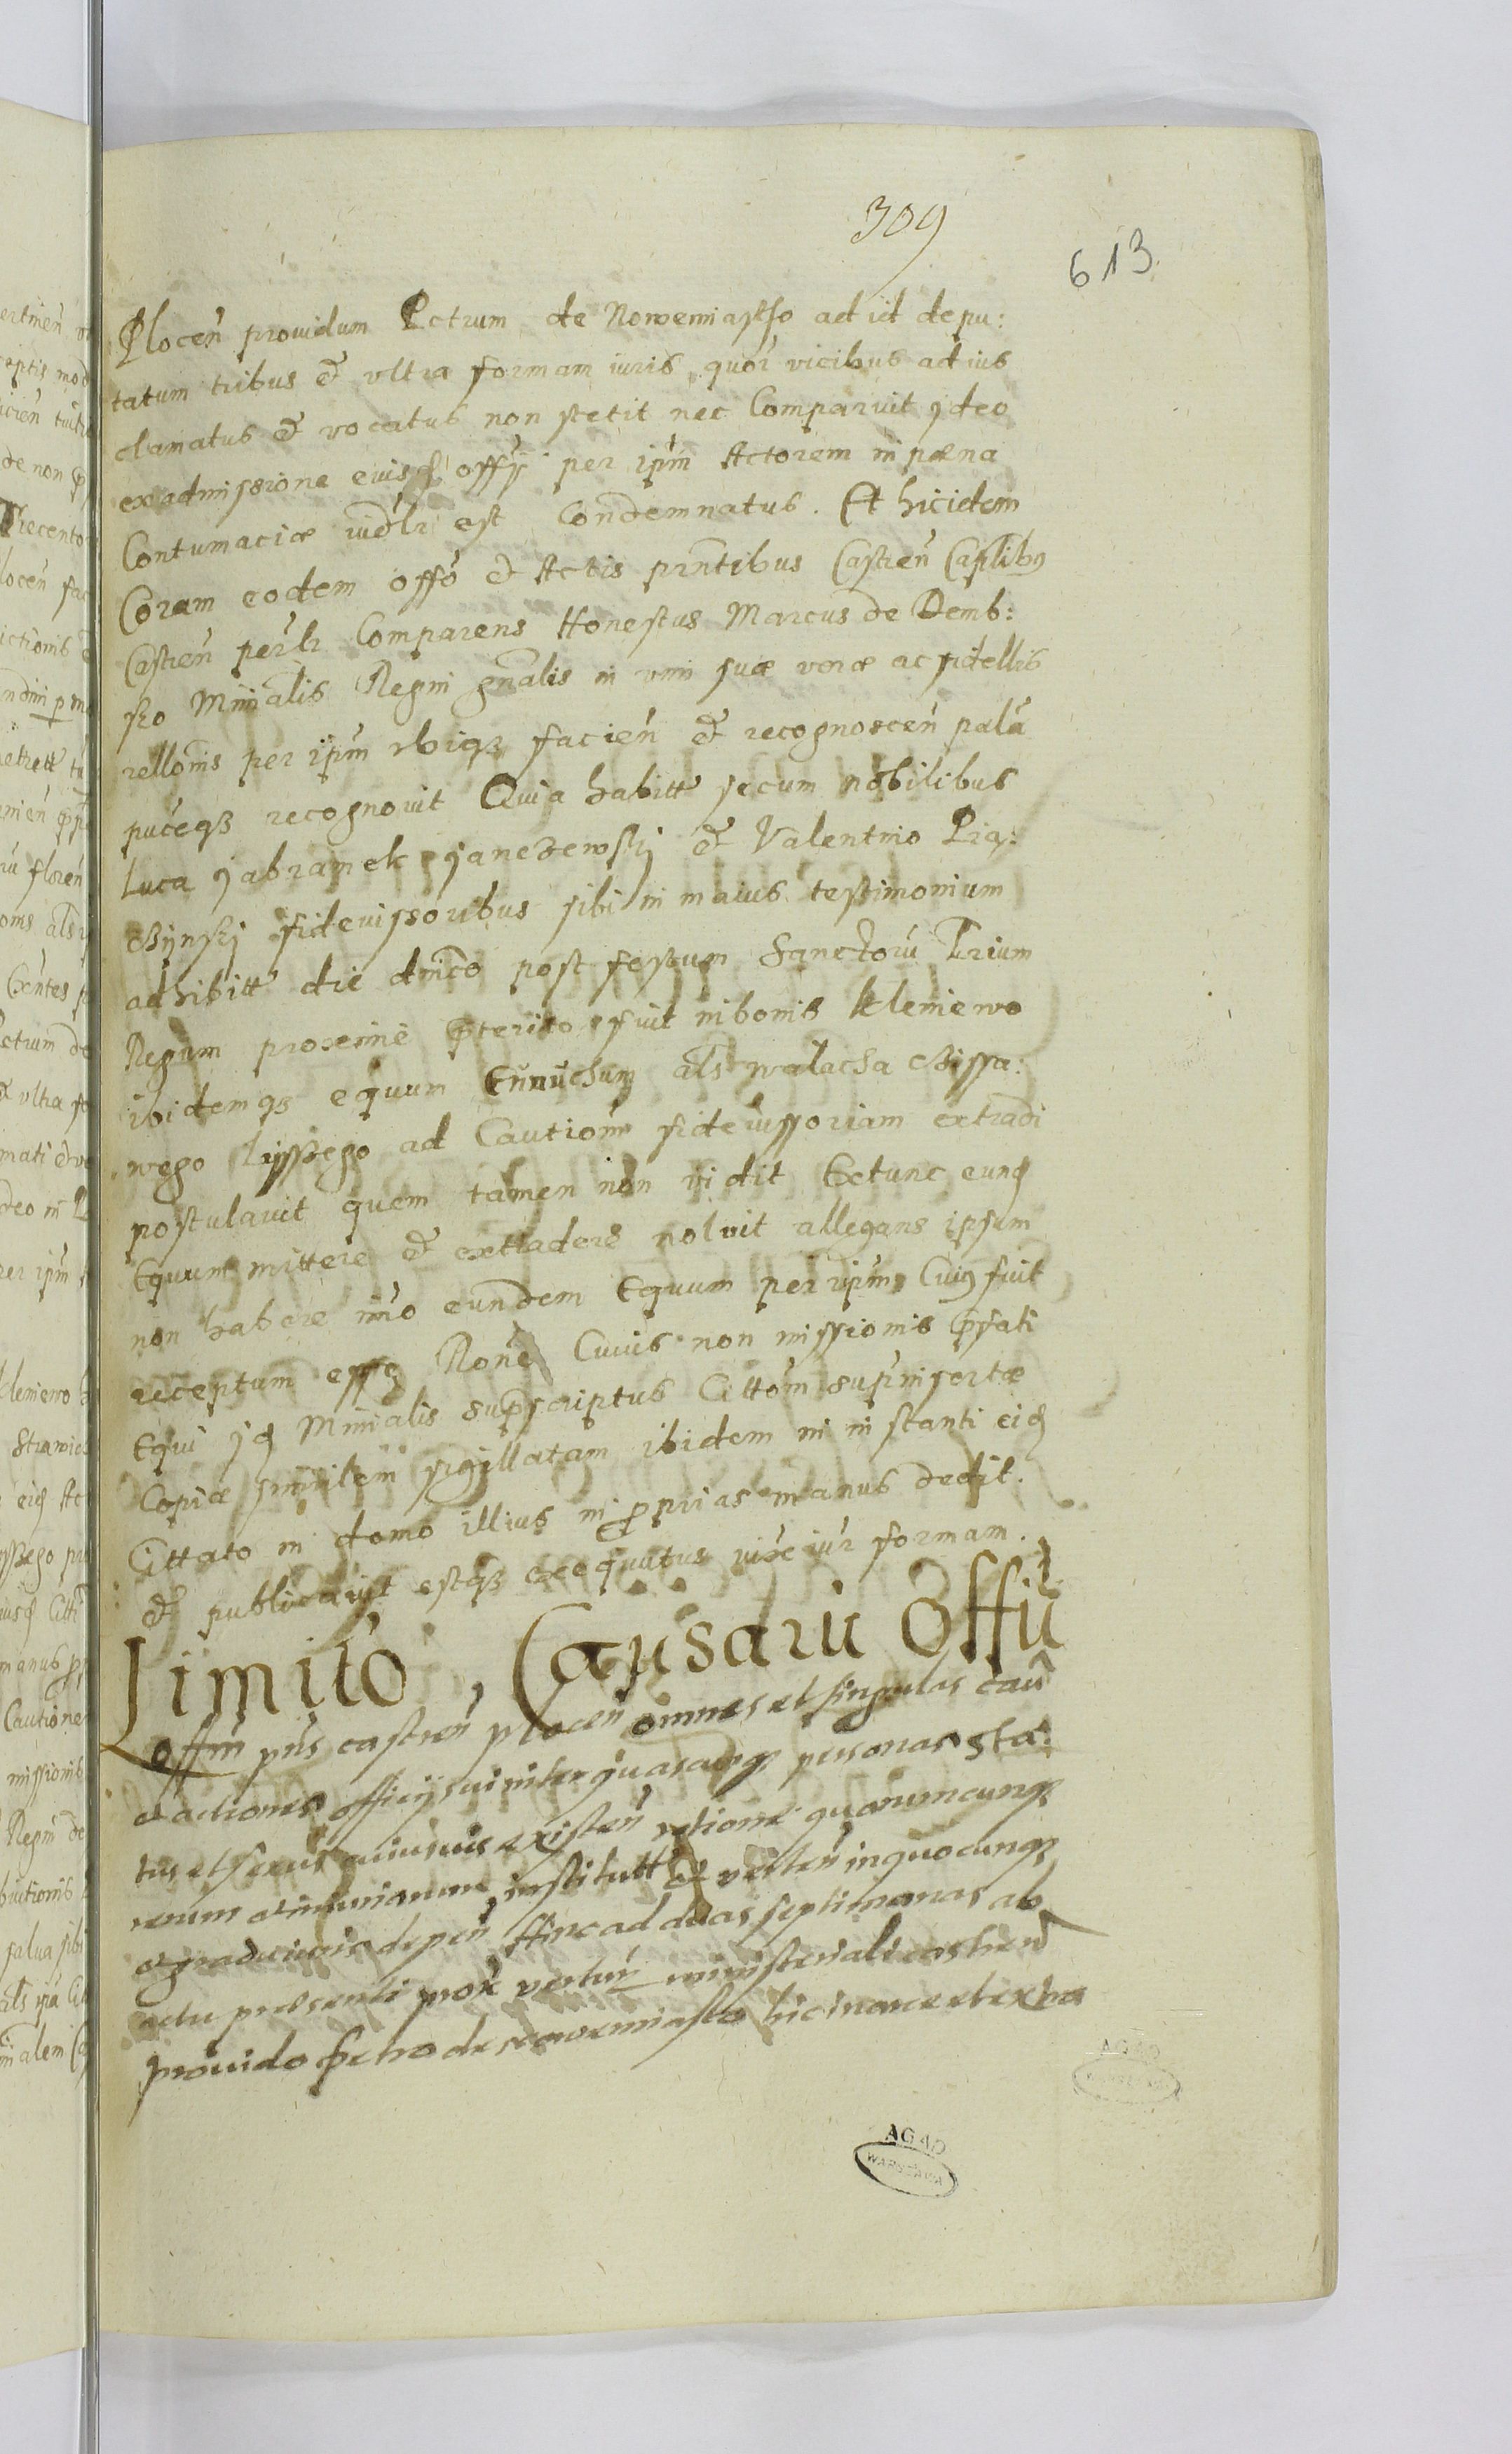 309
613
Plocen̄ providum Petrum de Nowemiasto ad id depu:
tatum tribus et vltra formam iuris quor vicibus ad ius
clamatus et vocatus non stetit nec Comparuit ideo
ex admissione eiusd offÿ per ipm̄ Actorem in pæna
Contumaciæ iudlr est Condemnatus. Et hic idem
Coram eodem offo et Actis prn̄tibus Castren̄ Caplibus
Castren̄ perlr Comparens Honestus Marcus de Demb:
sko Minialis Regni gn̄alis in vim suæ veræ ac fidellis
rellonis per ipm̄ vbiqz facien̄ et recognoscen̄ palā
puceqz recognovit Quia habitt secum nobilibus
Luca Jabramek Janczewskj et Valentino Pią:
czÿnskj fideiussoribus sibi in maius testimonium
adhibitt die dn̄ico post festum Sanctorū Trium
Regum proxime pterito fuit in bonis Kleniewo
ibidemqz equum Eunuchum als walacha Cissa:
wego Lyssego ad Cautionē fideiussoriam extradi
postulavit quem tamen non vidit Extunc eund
Equum mittere et extradere noluit allegans ipsum
non habere imo eundem Equum per ipm̄ Cuius fuit
receptum esse Rone Cuius non missionis pfati
Equi Jd Minialis supscriptus Cittom̄ suprinsertæ
Copiæ similem sigillatam ibidem in instanti eid
Cittato in domo illius in pprias manus dedit.
et publicavit estqz exequutus iuxe iur formam.
Limito, Causarū Offii
Offm̄ pn̄s castren̄ plocen̄ omnes et singulas cau
et actiones officij sui inter quascunqz personas sta:
tus et sexus cuiusuis existen̄ ratione quarumcunqz
rerum et iniuriarum institutt et verten̄ in quocunqz
et gradu iuris depen̄ Hinc ad duas septimanas ab
actu præsenti prox vertur̄ ministeriali castren̄
prouido Petro de nowemiasto hic in arce et extra
AGAD
WARSZAWA
AGAD